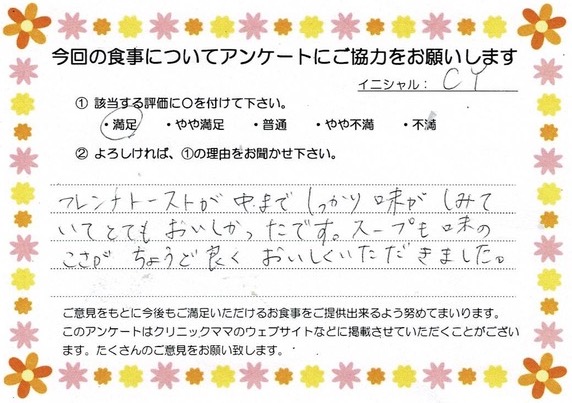 今回の食事についてアンケートにご協力をお願いします
イニシャル： CY
① 該当する評価に○を付けて下さい。
・満足 ・やや満足 ・普通 ・やや不満 ・不満
② よろしければ、①の理由をお聞かせ下さい。
フレンチトーストが 中まで しっかり 味が しみて
いて とても おいしかったです。スープも 味の
こさが ちょうど良く おいしくいただきました。
ご意見をもとに今後もご満足いただけるお食事をご提供出来るよう努めてまいります。
このアンケートはクリニックママのウェブサイトなどに掲載させていただくことがござい
ます。たくさんのご意見をお願い致します。